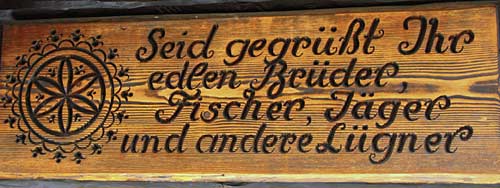 Seid gegrüßt Ihr
edlen Brüder,
Fischer, Jäger
und andere Lügner